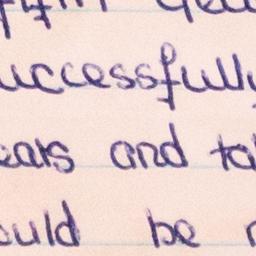 uccessfully
ears and ta
ould be